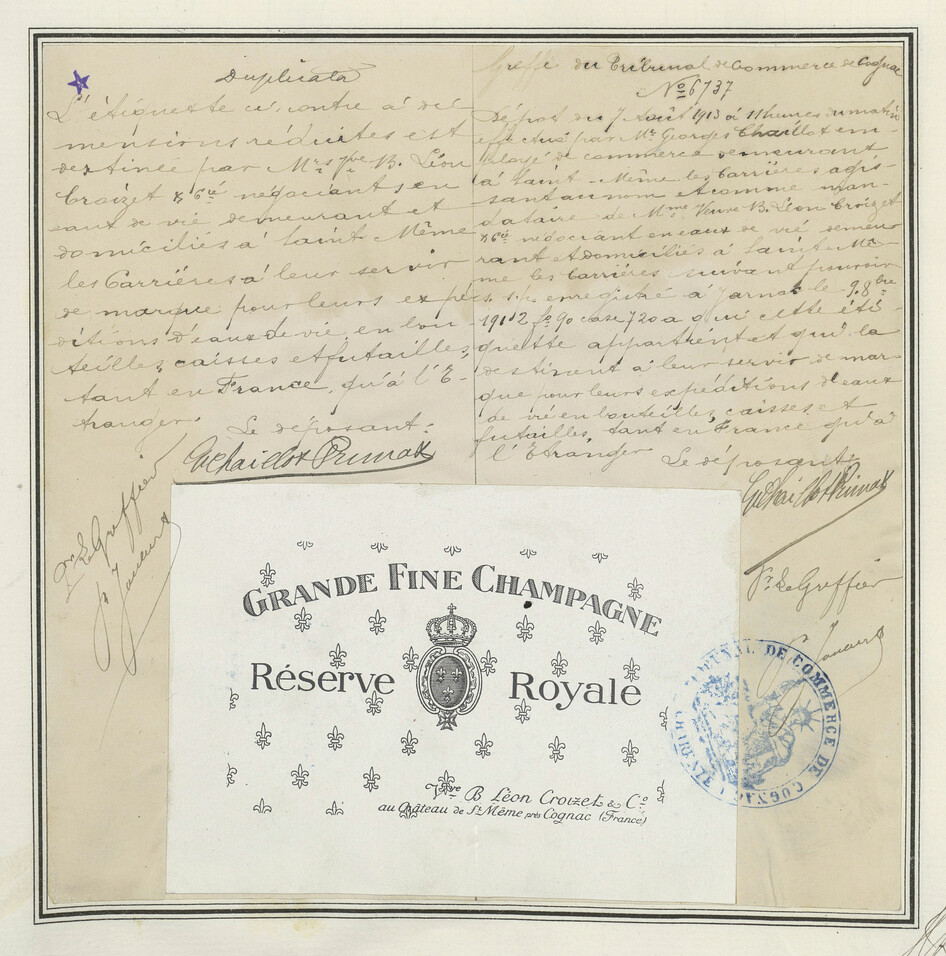 Duplicata
L'étiquette ci contre à di-
mensions réduites est
destinée par Mrs Vve B. Léon
Croizet & Cie négociants en
eaux de vie demeurant et
domiciliés à Saint Même
les Carrières à leur servir
de marque pour leurs expé
ditions d'eaux de vie en bou
teilles, caisses et futailles,
tant en France, qu'à l'E-
tranger.
Le déposant:
GChaillot Primat
Pr Le Greffier
Greffe du Tribunal de Commerce de Cognac
No 6737
Dépôt du 7 Août 1913 à 11 heures du matin
effectué par Mr Georges Chaillot em-
ployé de commerce demeurant
à Saint-Même les Carrières agis
sant au nom et comme man-
dataire de Mme Veuve B. Léon Croizet
& Cie négociant en eaux de vie demeu
rant et domiciliés à Saint-Mê-
me les Carrières suivant pouvoir
s. s.p. enregistré à Jarnac le 9 8bre
1912 fo 90 case 720 à qui cette éti-
quette appartient et qui la
destinent à leur servir de mar-
que pour leurs expéditions d'eaux
de vie en bouteilles, caisses et
futailles, tant en France qu'à
l'Etranger
Le déposant:
GChaillot Primat
Pr Le Greffier
GRANDE FINE CHAMPAGNE
Réserve Royale
Vve B. Léon Croizet & Co
au Château de St Même près Cognac (France)
TRIBUNAL DE COMMERCE DE COGNAC
CHARENTE